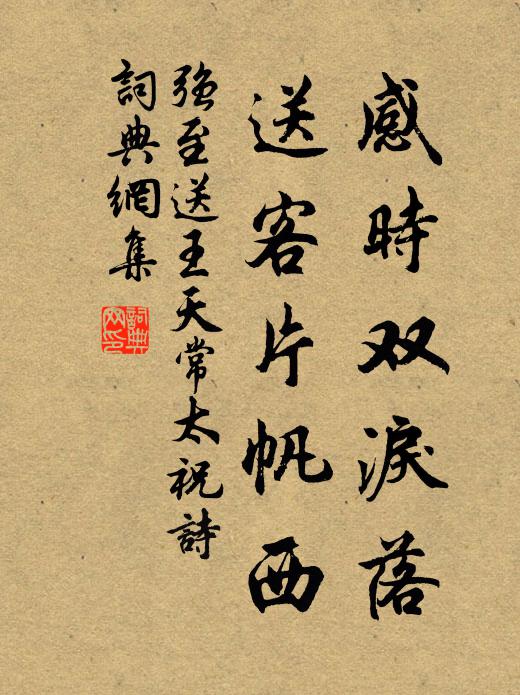 感時双淚落
送客片帆西
強至送王天常太祝詩
詞典網集
詞典网印